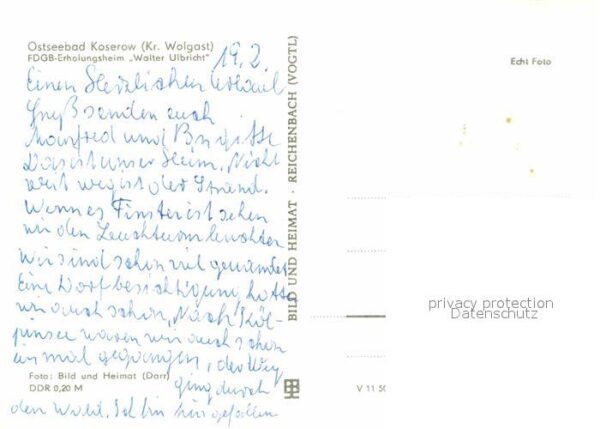 Ostseebad Koserow (Kr. Wolgast)
FDGB-Erholungsheim „Walter Ulbricht"
19.2.
Einen Herzlichen Urlaub
Gruß senden euch
Manfred und Brigitte
Das ist unser Heim. Nicht
weit weg ist der Strand.
Wenn es Finster ist sehen
wir den Leuchtturm leuchten
Wir sind schon viel gewandert
Eine Dorfbesichtigung hatte
wir auch schon, Nach Köl-
pinsee waren wir auch schon
ein mal gegangen, der Weg
ging durch
den Wald. Ich bin hingefallen
Foto: Bild und Heimat (Darr)
DDR 0,20 M
BILD UND HEIMAT · REICHENBACH (VOGTL)
Echt Foto
privacy protection
Datenschutz
V 11 50